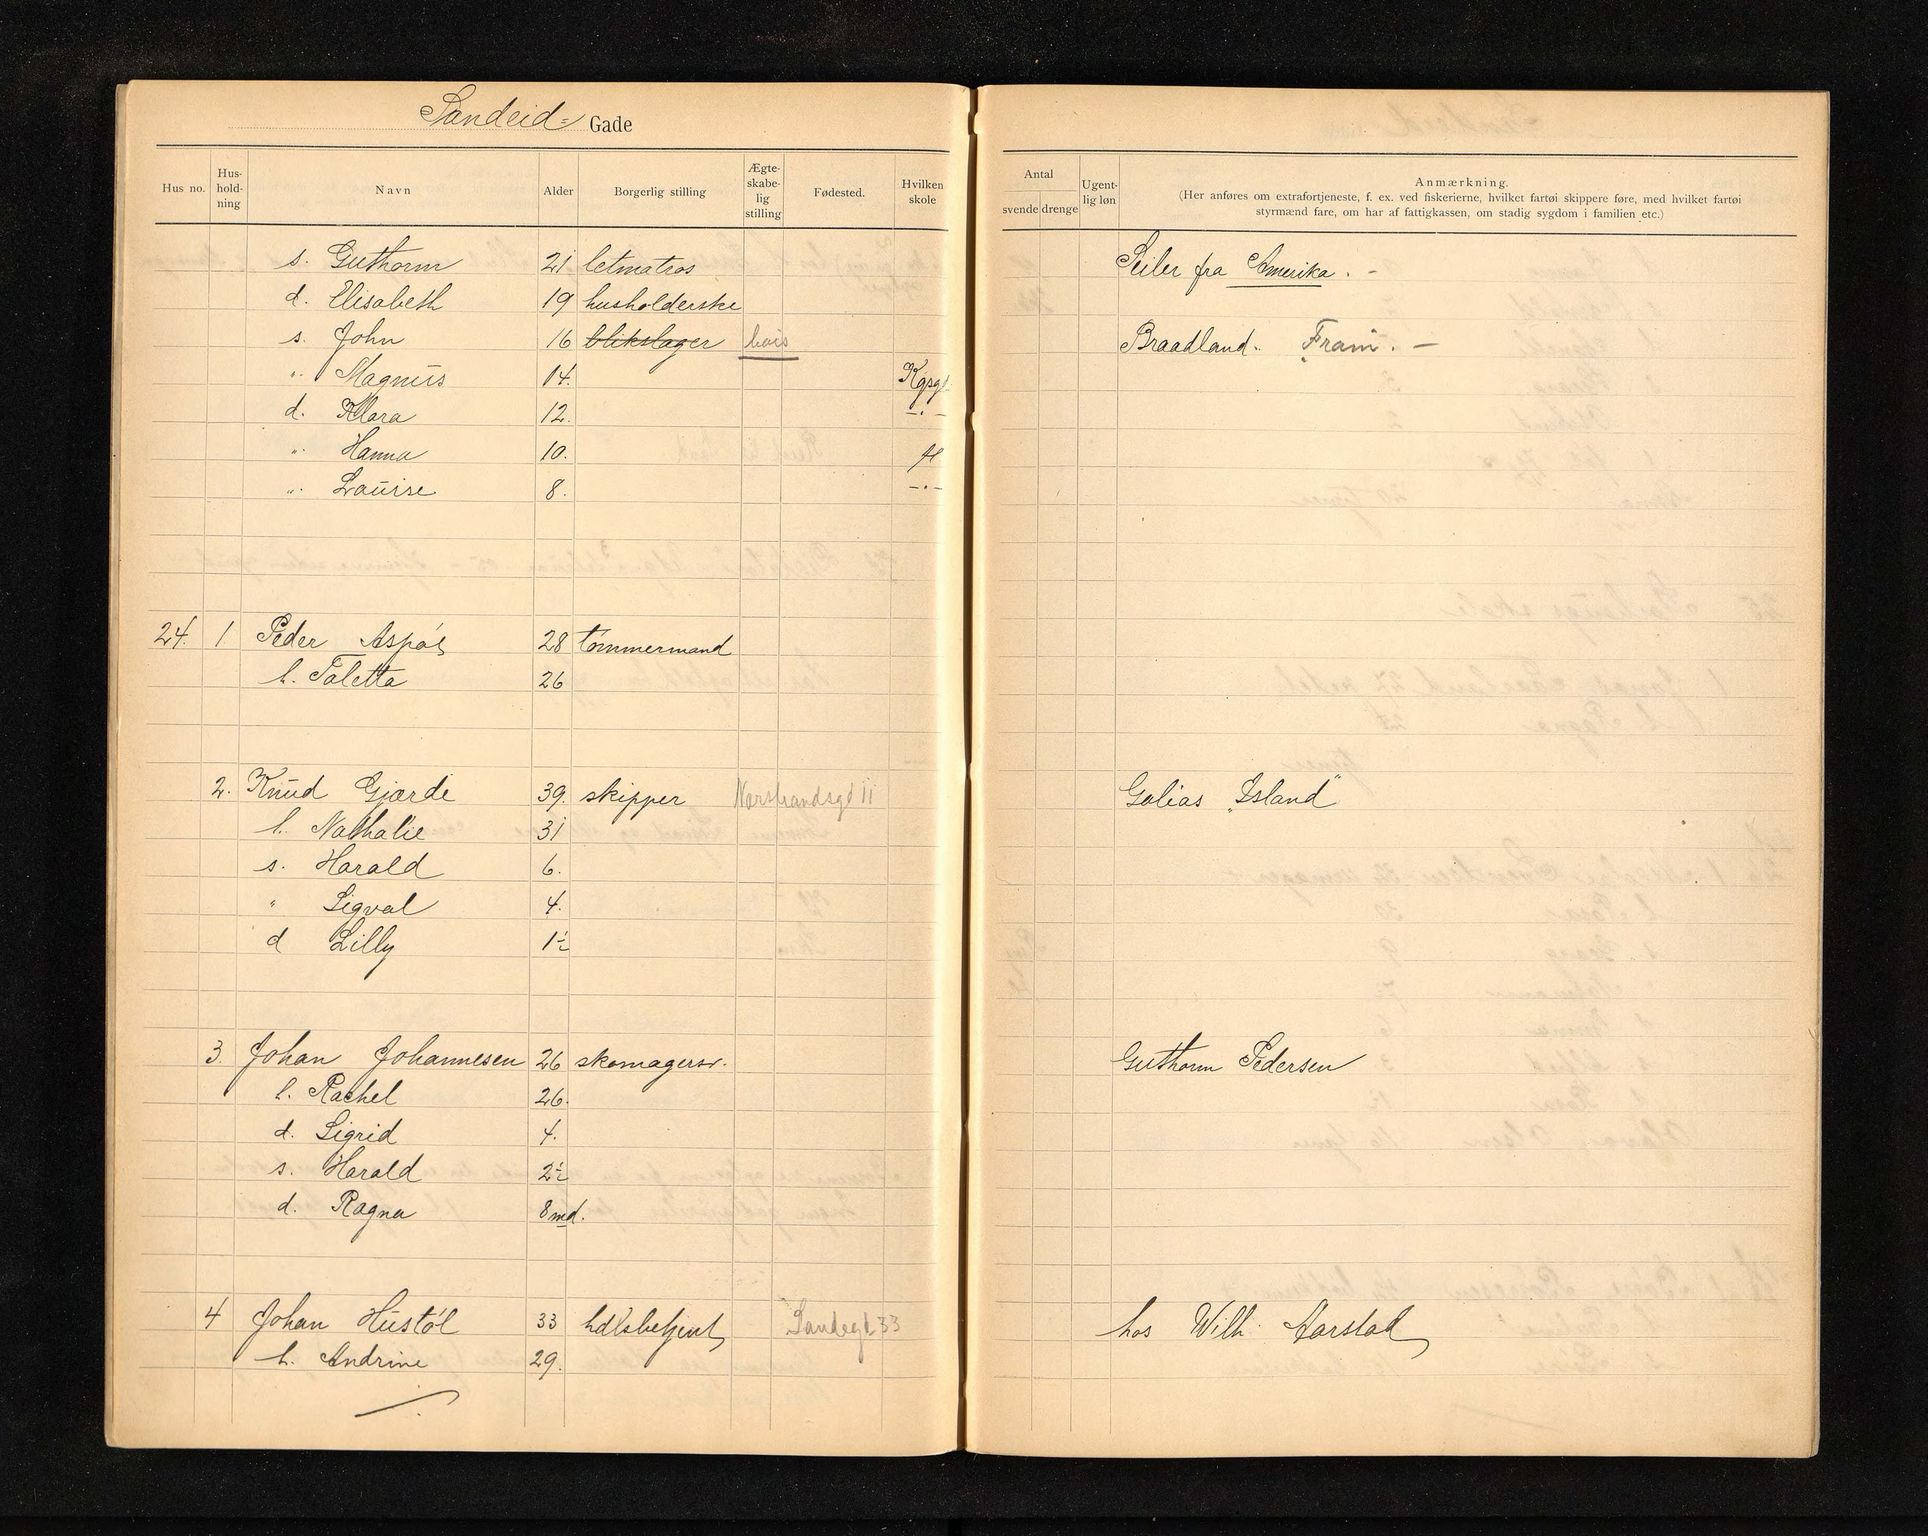 Sandeid- Gade
Hus no. Hus-hold-ning Navn Alder Borgerlig stilling Ægte-skabe-lig stilling Fødested. Hvilken skole Antal svende drenge Ugent-lig løn Anmærkning.
(Her anføres om extrafortjeneste, f. ex. ved fiskerierne, hvilket fartøi skippere føre, med hvilket fartøi
styrmænd fare, om har af fattigkassen, om stadig sygdom i familien etc.)
s. Guthorm 21 letmatros Seiler fra Amerika. -
d. Elisabeth 19 husholderske
s. John 16 blikslager Braadland. Fram. -
" Magnus 14. Kgsgt.
d. Klara 12. -"-
" Hanna 10. H
" Lauise 8. -"-
24. 1. Peder Aspøs 28 tømmermand
h. Taletta 26
2. Knud Gjærde 39. skipper Narstrandsgd 11 Golias "Island"
h. Nathalie 31
s. Harald 6.
" Sigval 4.
d Lilly 1½
3. Johan Johannesen 26 skomagersv. Guthorm Pedersen
h. Rachel 26.
d. Sigrid 4.
s. Harald 2½
d. Ragna 8 md.
4 Johan Hustøl 33 hdlsbetjent Sandegt 33 hos Wilh. Aarstad
h. Andrine 29.